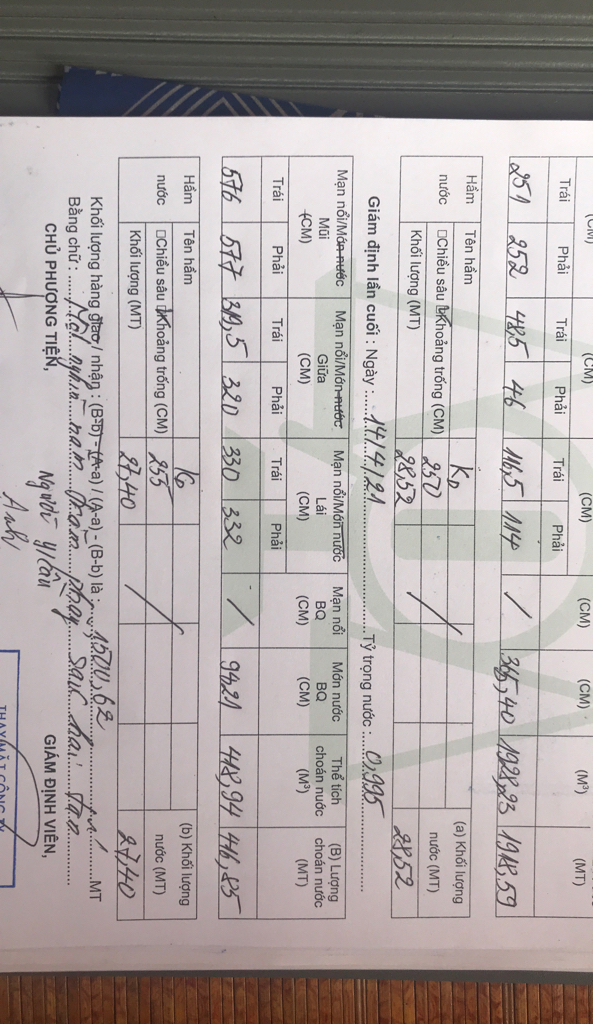 (CM) (CM) (CM) (CM) (CM) (M³) (MT)
Trái Phải Trái Phải Trái Phải
251 252 48,5 46 116,5 114 / 365,40 1928,23 1918,59
Hầm nước Tên hầm (a) Khối lượng nước (MT)
□Chiều sâu □Khoảng trống (CM) 250 /
Khối lượng (MT) 28,52 28,52
Giám định lần cuối : Ngày : 14/4/21 Tỷ trọng nước : 0,995
Mạn nổi/Món nước Mũi (CM) Mạn nổi/Món nước Giữa (CM) Mạn nổi/Món nước Lái (CM) Mạn nổi BQ (CM) Món nước BQ (CM) Thể tích choán nước (M³) (B) Lượng choán nước (MT)
Trái Phải Trái Phải Trái Phải
576 577 319,5 320 330 332 / 94,21 418,94 416,85
Hầm nước Tên hầm (b) Khối lượng nước (MT)
□Chiều sâu □Khoảng trống (CM) 255 /
Khối lượng (MT) 27,40 27,40
Khối lượng hàng giao / nhận : (B-b) - (A-a) / (A-a) - (B-b) là : 1500,62 MT
Bằng chữ : Một nghìn năm trăm phẩy sáu hai tấn
CHỦ PHƯƠNG TIỆN, Người y/cầu GIÁM ĐỊNH VIÊN,
Anh
THAY MẶT CÔNG TY